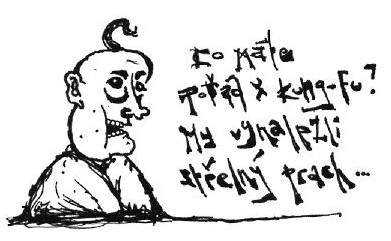 Co máte
pořád s kung-fu?
My vynalezli
střelný prach...